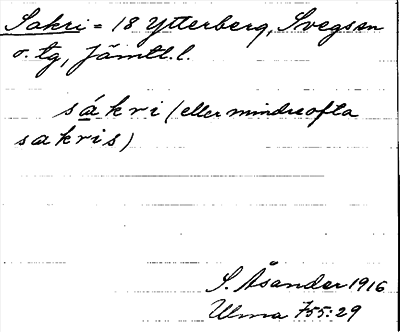 Sakri = 18 Ytterberg, Svegs sn
o. tg, Jämtl. l.
sákri (eller mindre ofta
sakris)
S. Åsander 1916
Ulma 755:29